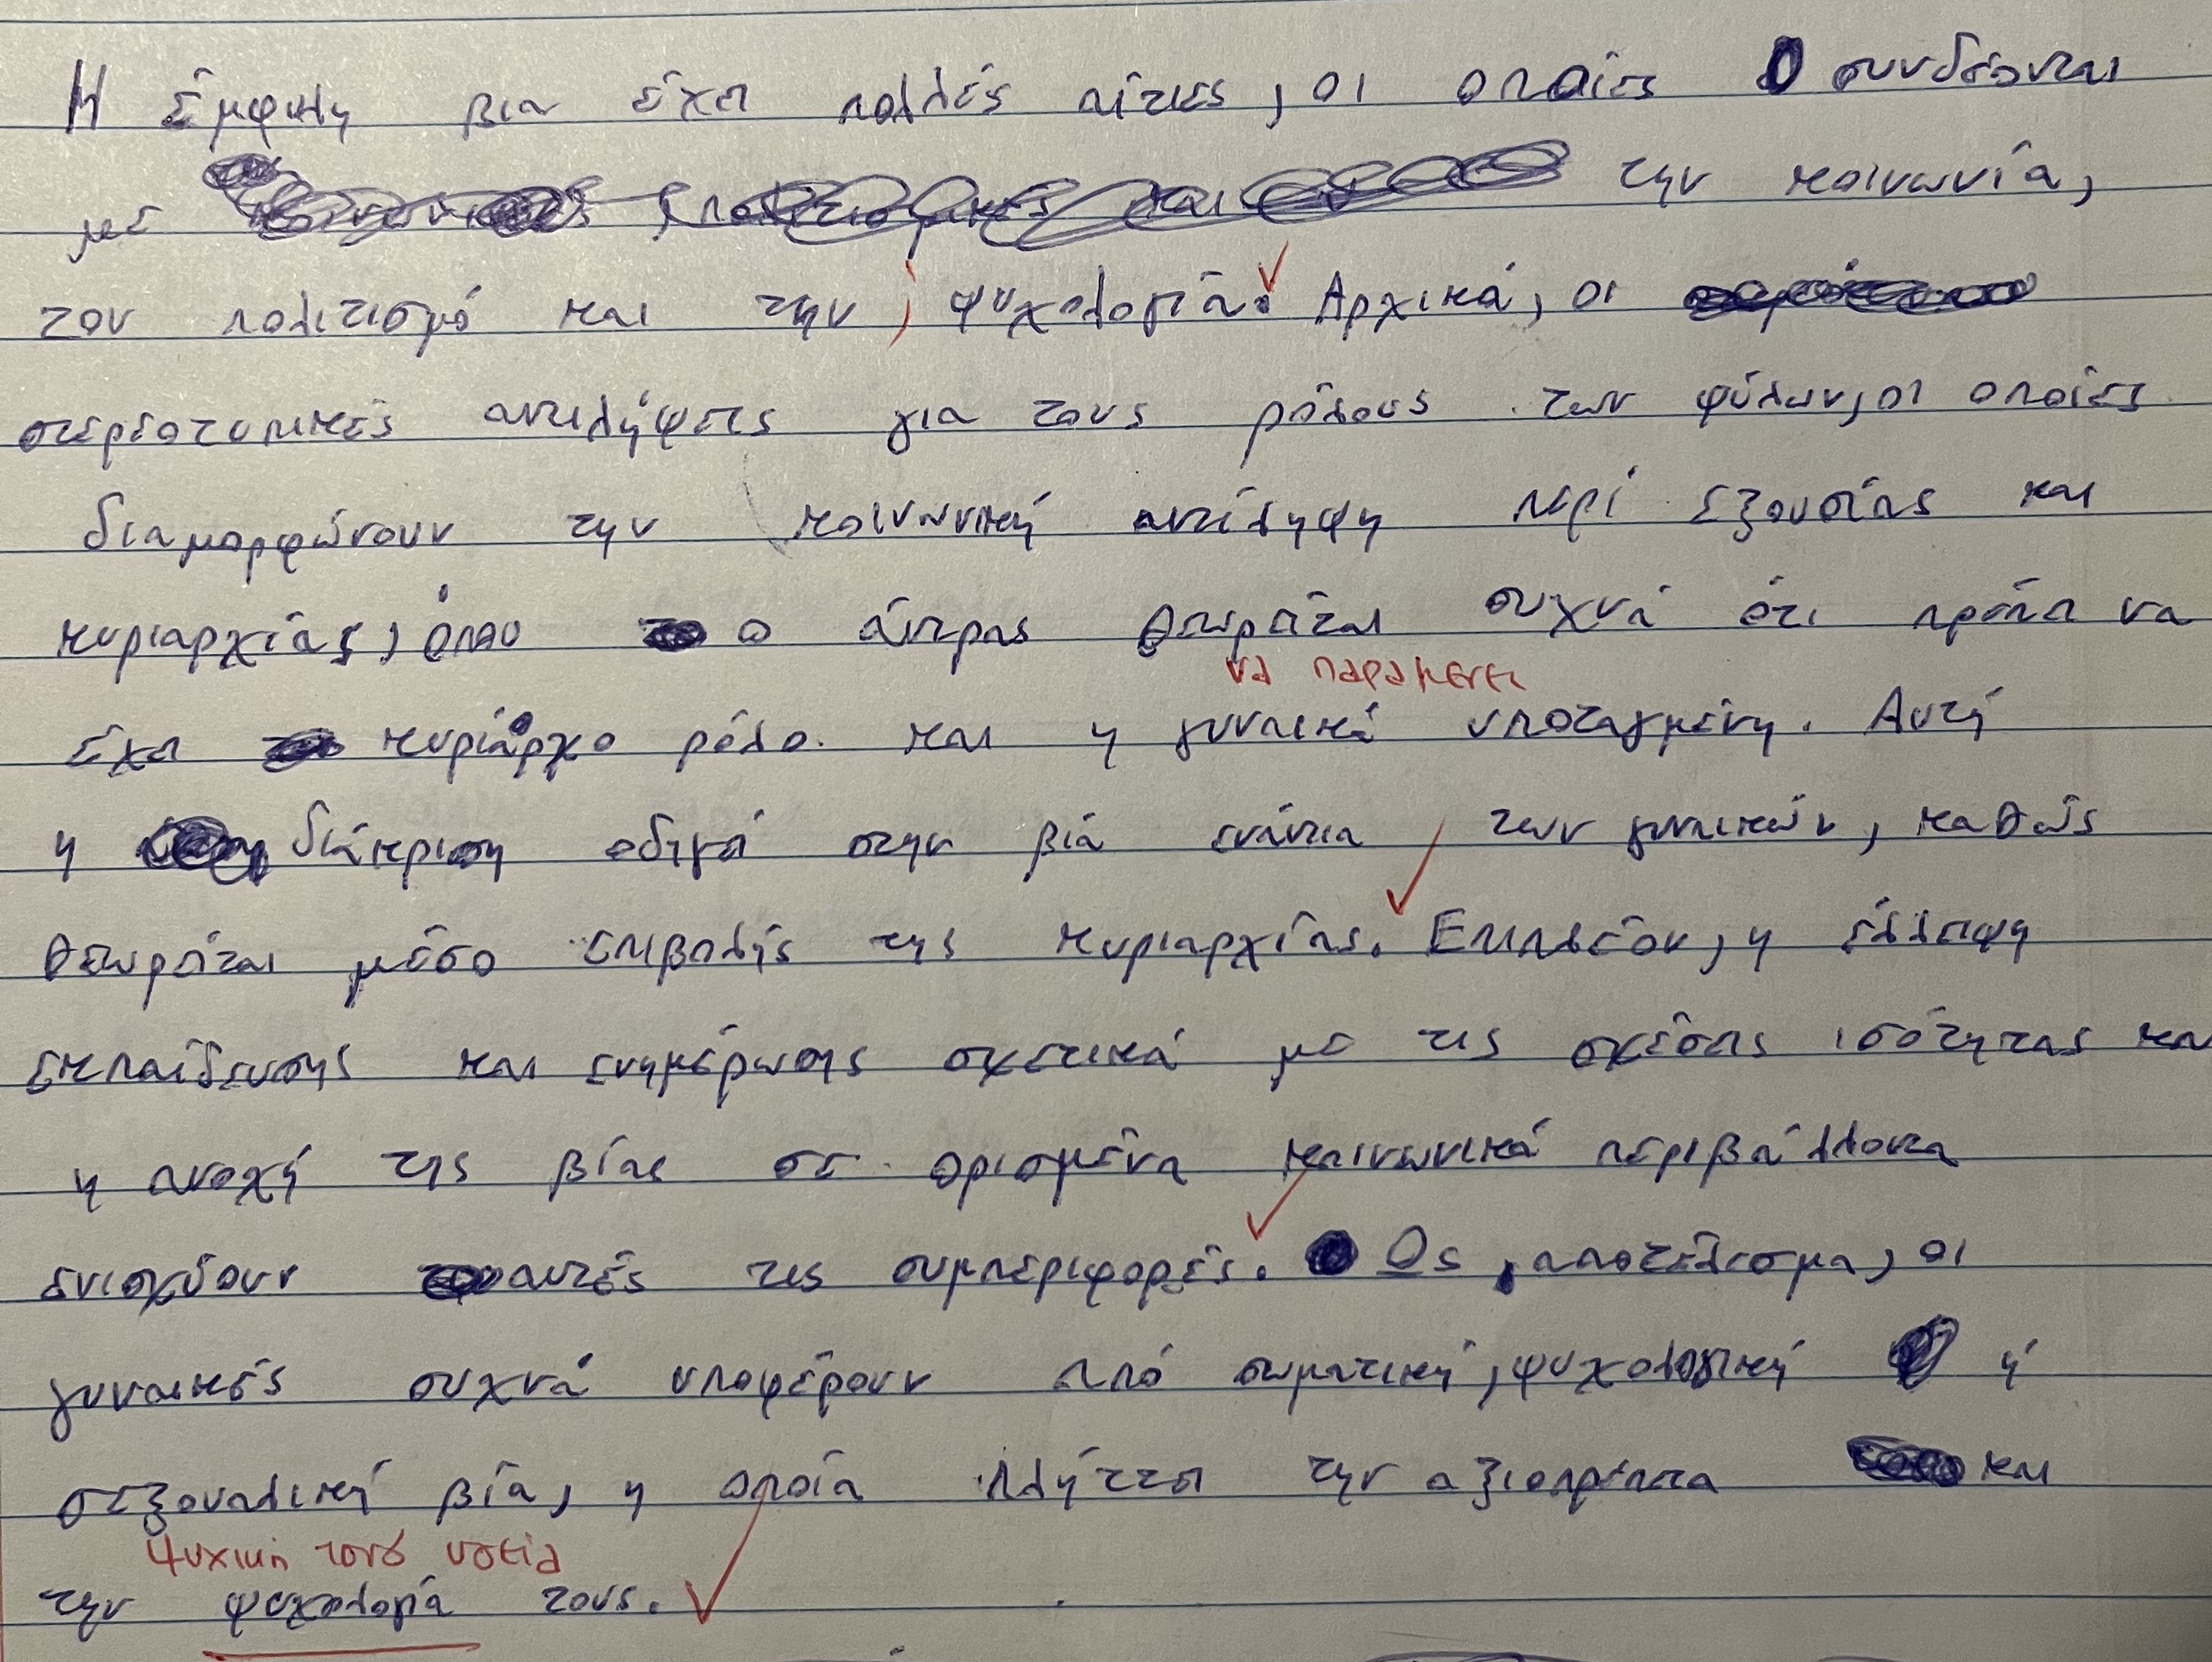 Η έμφυλη βια έχει πολλές αίτιες, οι οποίες συνδέονται
με την κοινωνία,
τον πολιτισμό και την ψυχολογία. Αρχικά, οι
στερεοτυπικές αντιλήψεις για τους ρόλους των φύλων, οι οποίες
διαμορφώνουν την κοινωνική αντίληψη περί εξουσίας και
κυριαρχίας, όπου ο άντρας θεωρείται συχνά ότι πρέπει να
να παραμένει
έχει κυρίαρχο ρόλο και η γυναικά υποταγμένη. Αυτή
η διάκριση οδηγεί στην βιά ενάντια των γυναικών, καθώς
θεωρείται μέσο επιβολής της κυριαρχίας. Επιπλέον, η έλλειψη
εκπαίδευσης και ενημέρωσης σχετικά με τις σχέσεις ισότητας και
η ανοχή της βίας σε ορισμένα κοινωνικά περιβάλλοντα
ενισχύουν αυτές τις συμπεριφορές. Ως αποτέλεσμα, οι
γυναικές συχνά υποφέρουν από σωματική, ψυχολογική ή
σεξουαλική βία, η οποία πλήττει την αξιοπρέπεια και
Ψυχική τους υγεία
την ψυχολογία τους.